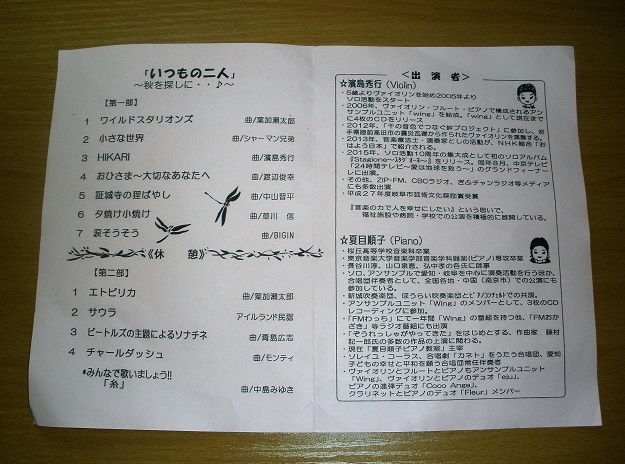 「いつもの二人」
～秋を探しに・・♪～
【第一部】
1 ワイルドスタリオンズ 曲/葉加瀬太郎
2 小さな世界 曲/シャーマン兄弟
3 HIKARI 曲/濱島秀行
4 おひさま～大切なあなたへ 曲/渡辺俊幸
5 証城寺の狸ばやし 曲/中山晋平
6 夕焼け小焼け 曲/草川 信
7 涙そうそう 曲/BIGIN
《休 憩》
【第二部】
1 エトピリカ 曲/葉加瀬太郎
2 サウラ アイルランド民謡
3 ビートルズの主題によるソナチネ 曲/青島広志
4 チャールダッシュ 曲/モンティ
*みんなで歌いましょう!!
「糸」 曲/中島みゆき
＜出 演 者＞
☆濱島秀行(Violin)
・5歳よりヴァイオリンを始め2005年より
ソロ活動をスタート
・2006年、ヴァイオリン・フルート・ピアノで構成されるアン
サンブルユニット「wing」を結成。「wing」として現在まで
に4枚のCDをリリース
・2012年、「千の音色でつなぐ絆プロジェクト」に参加し、岩
手県陸前高田市の震災瓦礫から作られたヴァイオリンを演奏する。
・2013年、音楽療法士・演奏家としの活動が、NHK総合「お
はよう日本」で紹介される。
・2015年、ソロ活動10周年の集大成として初のソロアルバム
「24時間テレビ～愛は地球を救う～」のグランドフィーナー
レに出演。
・その他、ZIP-FM、CBCラジオ、ぎふチャンラジオ等メディア
にも多数出演
・平成27年度岐阜市芸術文化奨励賞受賞
『音楽の力で人を幸せにしたい』という思いで、
福祉施設や病院・学校での公演を積極的に展開している。
☆夏目順子(Piano)
・桜丘高等学校音楽科卒業
・東京音楽大学音楽学部音楽学科器楽(ピアノ)専攻卒業
・長谷川淳、山口泉恵、弘中孝の各氏に師事
・ソロ、アンサンブルで愛知・岐阜を中心に演奏活動を行うほか、
合唱団伴奏者として、全国各地・中国(南京市)での公演にも
参加している。
・新城吹奏楽団、ほうらい吹奏楽団とピアノコンチェルトでの共演。
・アンサンブルユニット「Wing」のメンバーとして、3枚のCD
レコーディングに参加。
・「FMわっち」にて一年間「Wing」の番組を持つ他、「FMおか
ざき」等ラジオ番組にも出演
・「ぞうれっしゃがやってきた」をはじめとする、作曲家 藤村
記一郎氏の多数の作品の上演に関わる。
・現在「夏目順子ピアノ教室」主宰
・ソレイユ・コーラス、合唱劇「カネト」をうたう合唱団、愛知
子どもの幸せと平和を願う合唱団常任伴奏者
・ヴァイオリンとフルートとピアノもアンサンブルユニット
「Wing」、ヴァイオリンとピアノのデュオ「eju」、
ピアノの連弾デュオ「Coco Ange」、
クラリネットとピアノのデュオ「Fleur」メンバー